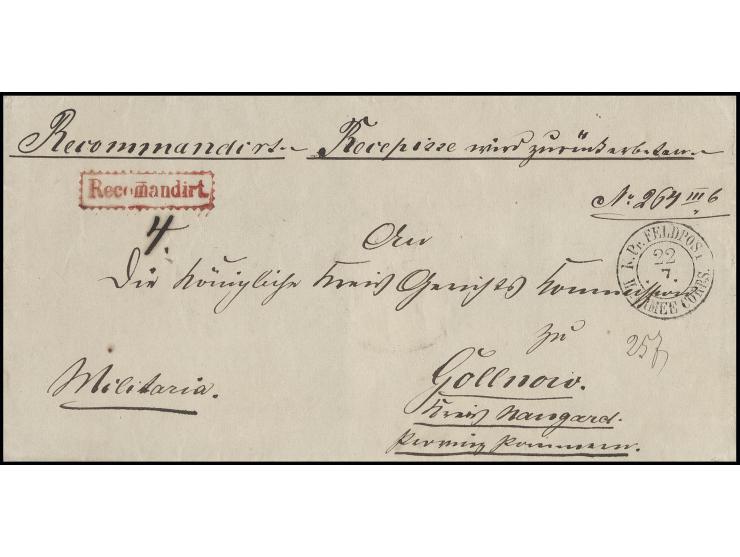 Recommandirt. Recepisse wird zurückerbeten.
Recomandirt.
No. 264 III b
4.
An
K. PR. FELDPOST
22
7.
ARMEE CORPS.
Die Königliche Kreis Gerichts Kommission
zu
257
Gollnow.
Militaria.
Kreis Naugard.
Provinz Pommern.